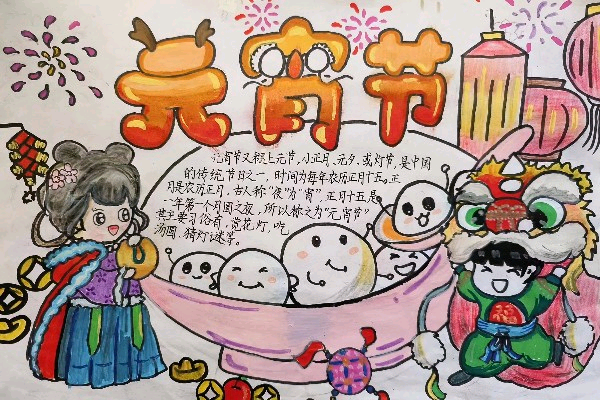 元宵节
元宵节又称上元节,小正月、元夕、或灯节,是中国
的传统节日之一,时间为每年农历正月十五。正
月是农历正月,古人称“夜”为“宵”,正月十五是
一年第一个月圆之夜,所以称之为“元宵节”
其主要习俗有,赏花灯、吃
汤圆、猜灯谜等。